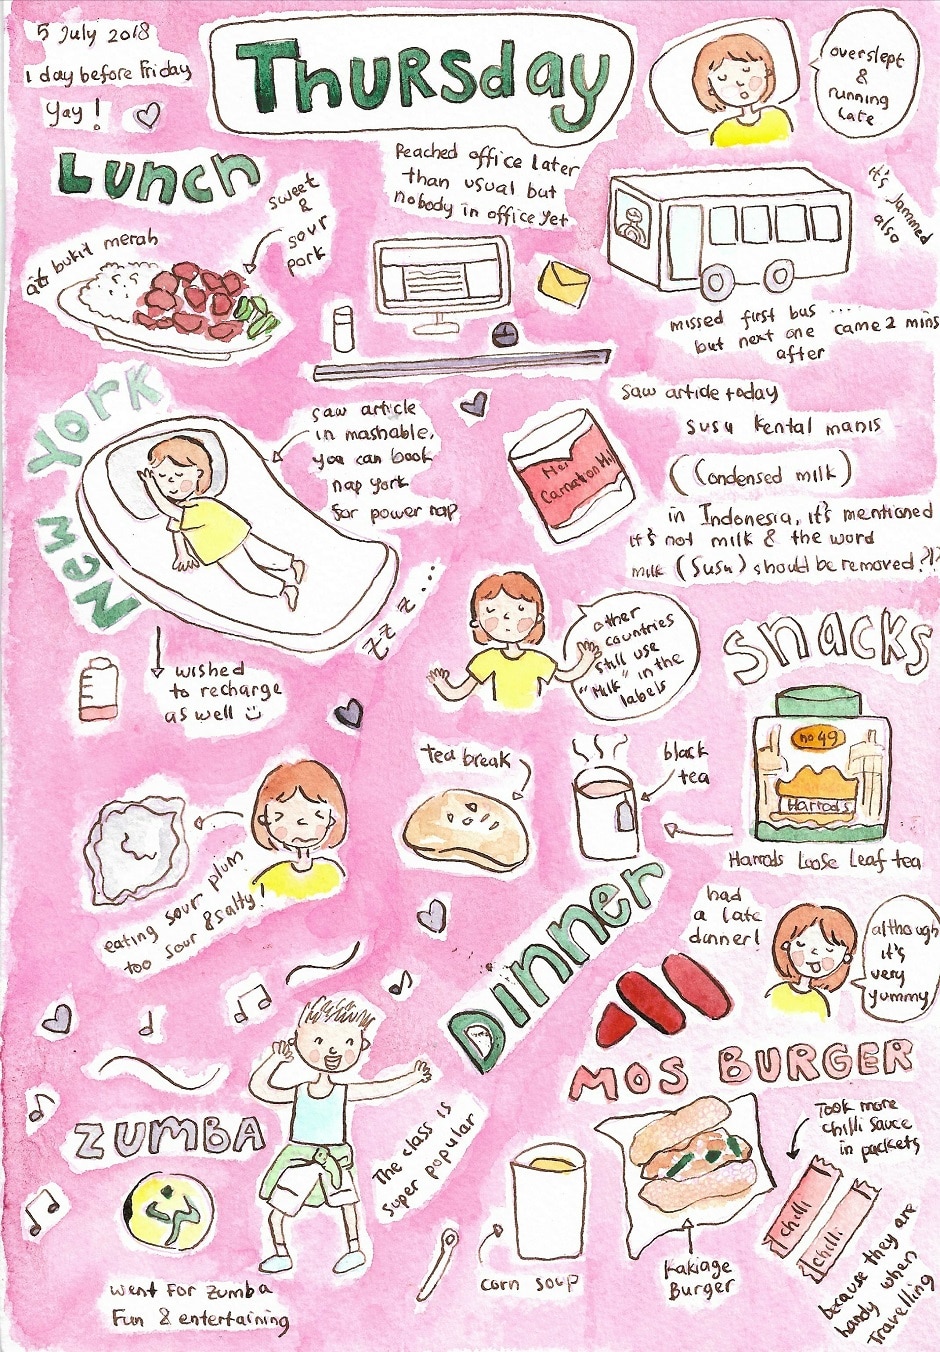 5 July 2018
1 day before Friday
Yay!
Thursday
overslept
&
running
late
Lunch
at bukit merah
sweet
&
sour
pork
Reached office later
than usual but
nobody in office yet
it's jammed
also
missed first bus ......
but next one came 2 mins
after
New York
saw article
in mashable,
you can book
nap york
for power nap
zzz...
wished
to recharge
as well
saw article today
susu kental manis
(Condensed milk)
in Indonesia, it's mentioned
it's not milk & the word
milk (susu) should be removed?!?
Carnation
other
countries
still use
"Milk" in the
labels
Snacks
no 49
Harrods
Harrods Loose Leaf tea
tea break
black
tea
eating sour plum
too sour & salty!
Dinner
had
a late
dinner!
although
it's
very
yummy
MOS BURGER
Took more
chilli sauce
in packets
chilli
chilli
because they are
handy when
travelling
Kakiage
Burger
corn soup
ZUMBA
The class is
super popular
went for zumba
Fun & entertaining